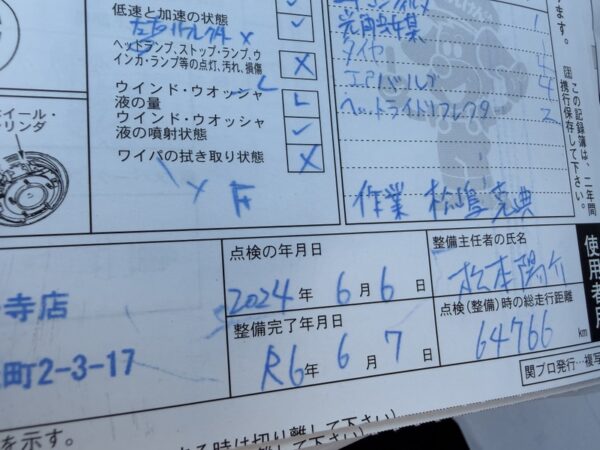 低速と加速の状態
ヘッドランプ、ストップ・ランプ、ウ
インカ・ランプ等の点灯、汚れ、損傷
ウインド・ウオッシャ
液の量
ウインド・ウオッシャ
液の噴射状態
ワイパの拭き取り状態
ホイール・
リンダ
タイヤ 4
エアバルブ 4
ヘッドライトリフレクタ 2
作業 松嶌克典
ます。
この記録簿は、二年間
携行保存して下さい。
点検の年月日
2024年 6月 6日
整備主任者の氏名
松本陽介
整備完了年月日
R6年 6月 7日
点検(整備)時の総走行距離
64766 km
寺店
町2-3-17
使用者用
関プロ発行…複写
を示す。
る時は切り離して下さい)